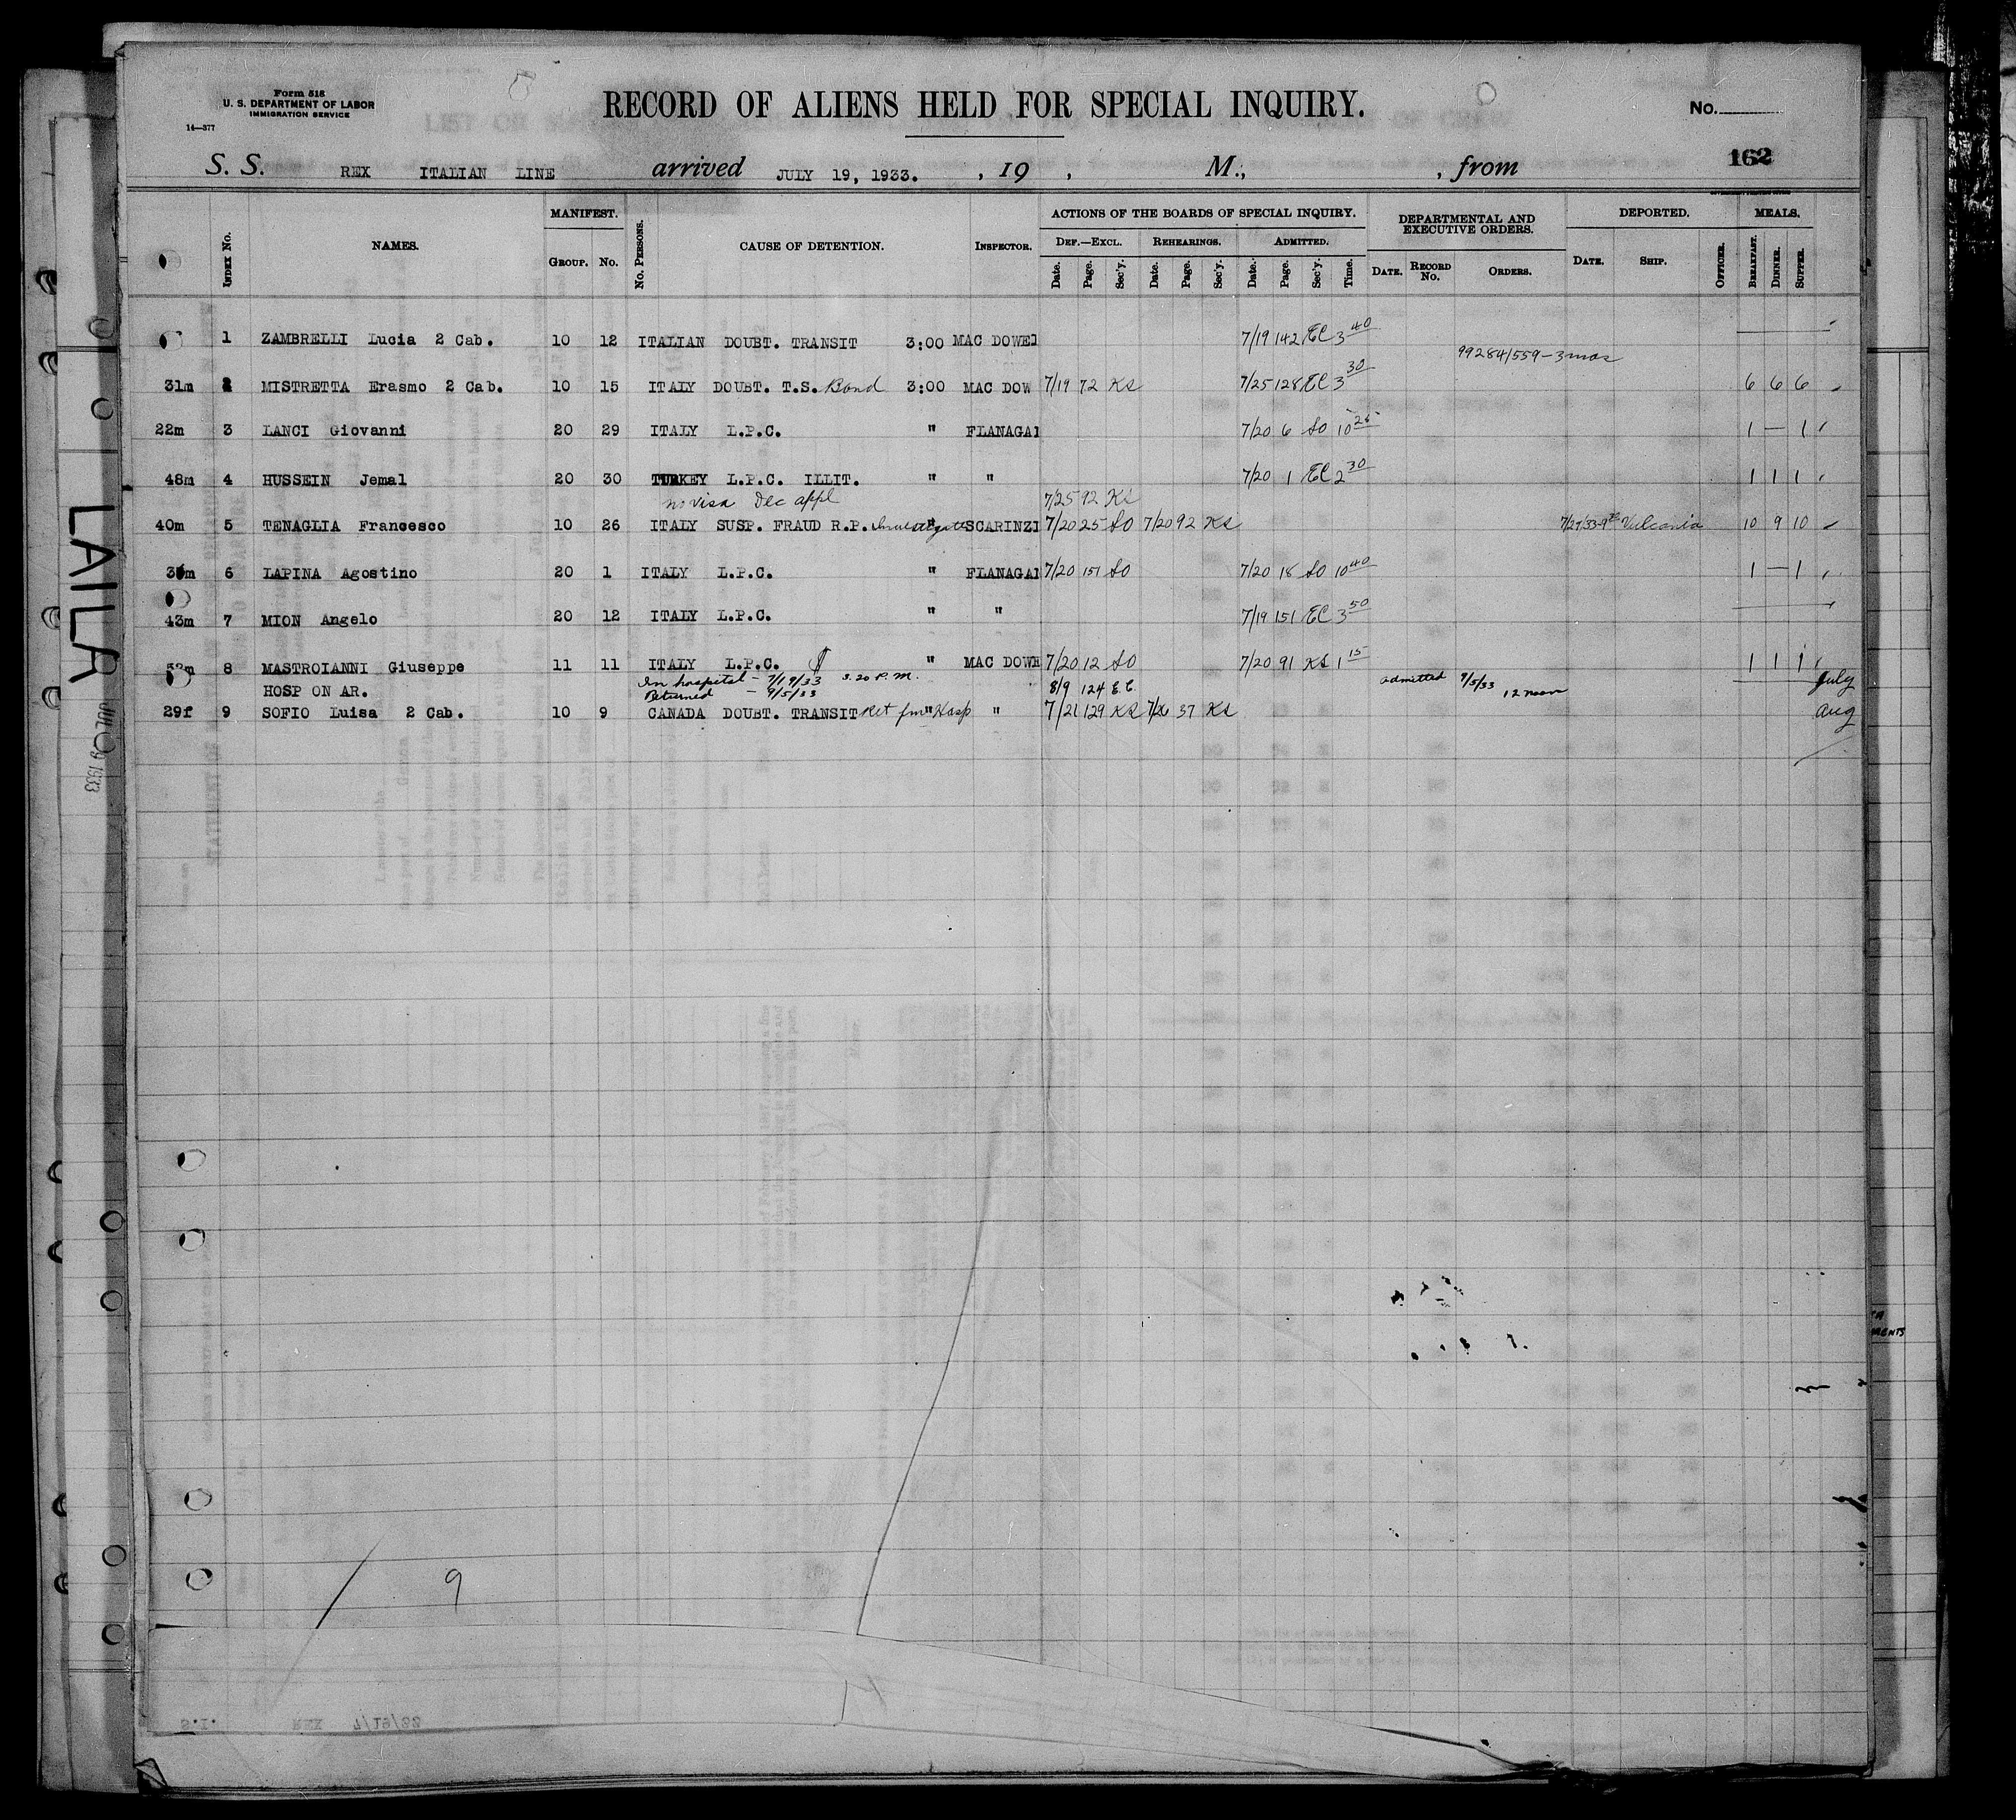 Form 518
U. S. DEPARTMENT OF LABOR
IMMIGRATION SERVICE
14—377
RECORD OF ALIENS HELD FOR SPECIAL INQUIRY.
No.
162
S. S. REX ITALIAN LINE arrived JULY 19, 1933. , 19 , M., , from
INDEX No. NAMES. MANIFEST. GROUP. No. No. PERSONS. CAUSE OF DETENTION. INSPECTOR. ACTIONS OF THE BOARDS OF SPECIAL INQUIRY. DEPARTMENTAL AND EXECUTIVE ORDERS. DEPORTED. MEALS.
DEF.—EXCL. REHEARINGS. ADMITTED.
Date. Page. Sec'y. Date. Page. Sec'y. Date. Page. Sec'y. Time. DATE. RECORD No. ORDERS. DATE. SHIP. OFFICER. BREAKFAST. DINNER. SUPPER.
1 ZAMBRELLI Lucia 2 Cab. 10 12 ITALIAN DOUBT. TRANSIT 3:00 MAC DOWEl 7/19 142 EC 3 40
99284/559 - 3 mos
31m 2 MISTRETTA Erasmo 2 Cab. 10 15 ITALY DOUBT. T.S. Bond 3:00 MAC DOW 7/19 72 KS 7/25 128 EC 3 30 6 6 6
22m 3 LANCI Giovanni 20 29 ITALY L.P.C. " FLANAGAN 7/20 6 SO 10 25 1 — 1
48m 4 HUSSEIN Jemal 20 30 TURKEY L.P.C. ILLIT. " " 7/20 1 EC 2 30 1 1 1
no visa Dec appl 7/25 92 KS
40m 5 TENAGLIA Francesco 10 26 ITALY SUSP. FRAUD R.P. Investigate " SCARINZI 7/20 25 SO 7/20 92 KS 7/27/33 Vulcania 10 9 10
6 LAPINA Agostino 20 1 ITALY L.P.C. " FLANAGAN 7/20 151 SO 7/20 18 SO 10 40 1 — 1
43m 7 MION Angelo 20 12 ITALY L.P.C. " " 7/19 151 EC 3 50
8 MASTROIANNI Giuseppe 11 11 ITALY L.P.C. " MAC DOWE 7/20 12 SO 7/20 91 KS 1 15 1 1 1
HOSP ON AR. In hospital - 7/19/33 3.20 P.M. 8/9 124 E.C. admitted 9/5/33 12 noon July
Returned - 9/5/33
29f 9 SOFIO Luisa 2 Cab. 10 9 CANADA DOUBT. TRANSIT Ret fm Hosp " " 7/21 129 KS 7/26 37 KS Aug
LAILA
JUL 19 1933
9
S.I. REX 7/19/33